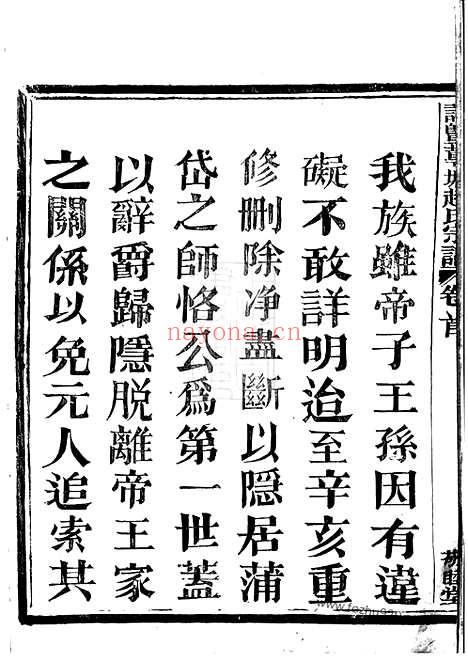 趙氏宗譜 卷首
我族雖帝子王孫因有違
礙不敢詳明迨至辛亥重
修刪除净盡斷以隱居蒲
岱之師恪公爲第一世蓋
以辭爵歸隱脱離帝王家
之關係以免元人追索其
nayona.cn